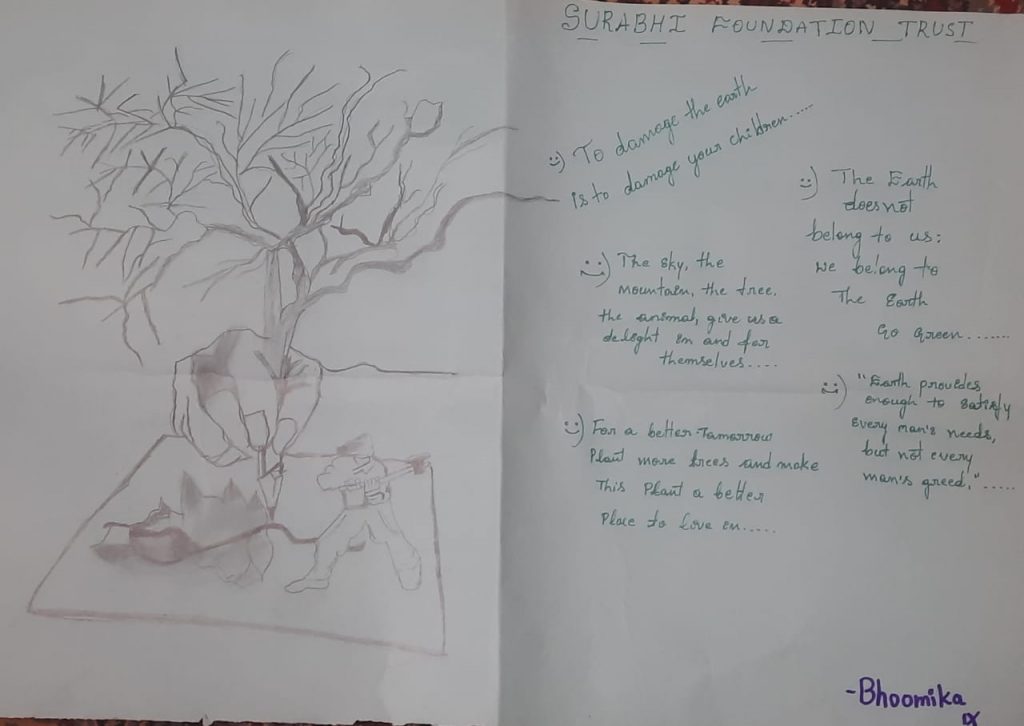 SURABHI FOUNDATION TRUST
To damage the earth
is to damage your children.....
The Earth
does not
belong to us:
We belong to
The Earth
Go Green.......
The sky, the
mountain, the tree.
the animal, give us a
delight in and for
themselves....
"Earth provides
enough to satisfy
every man's needs,
but not every
man's greed,".....
For a better Tamorrow
Plant more trees and make
This Plant a better
Place to Love in.....
-Bhoomika
IX